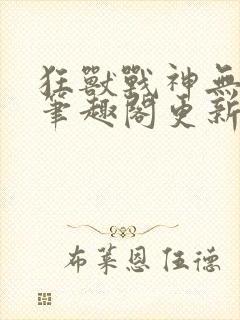 狂獸戰神無
筆趣閣更新
布萊恩伍德